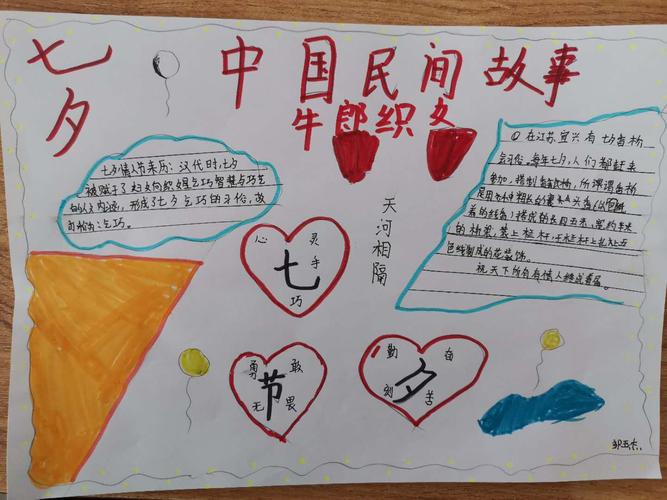 七夕
中国民间故事
牛郎织女
七夕情人节来历:汉代时,七夕
被赋予了妇女向织姐乞巧智慧与巧艺
的人文内涵,形成了七夕乞巧的习俗,故
乞巧
天河相隔
①在江苏宜兴有
会习俗。每年七夕,人们都赶来
参加。搭制香桥,所谓香桥
是用
的桥梁,装上栏杆,于栏杆上扎上
色线制成的花装饰。
祝天下所有有情人终成眷属。
心灵手巧
七
勇敢无畏
节
勤奋刻苦
夕